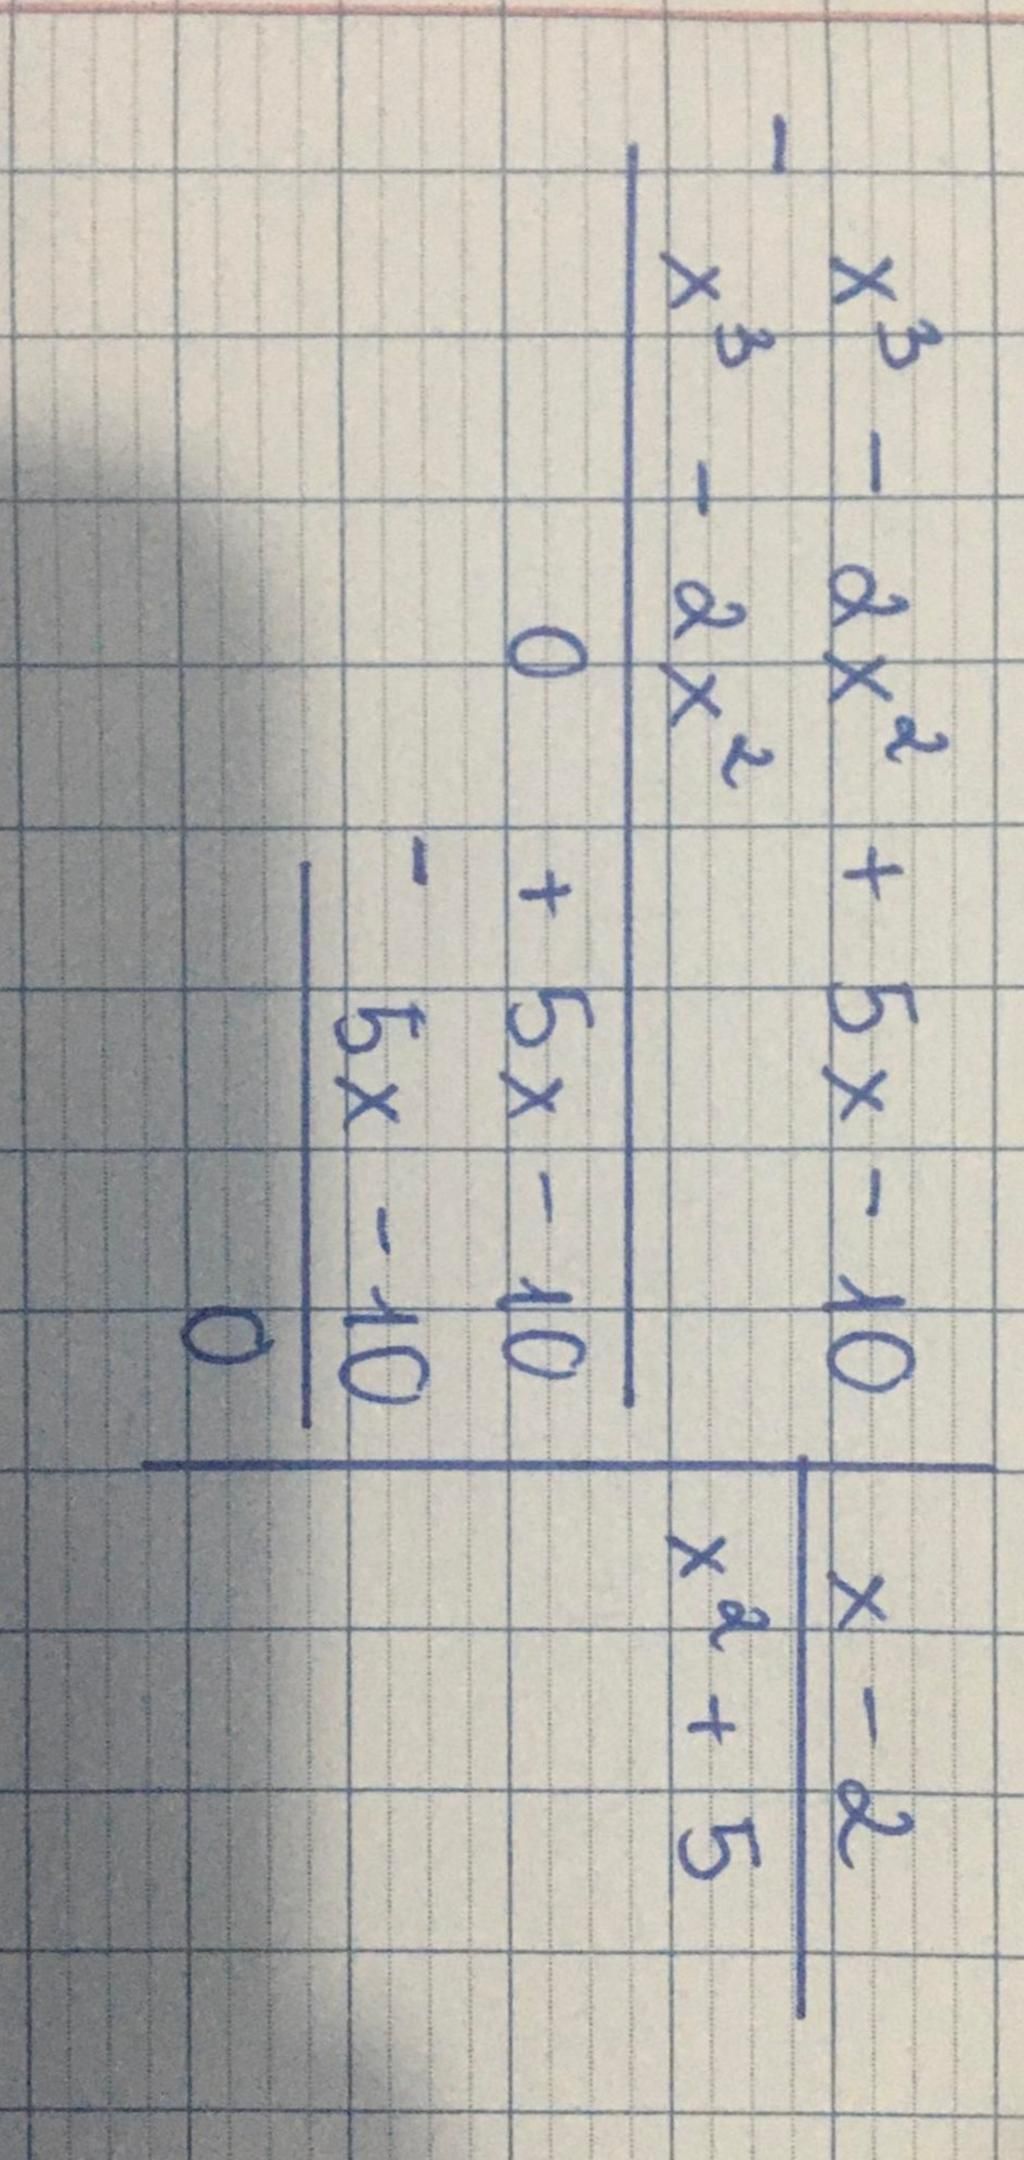 x³ - 2x² + 5x - 10 | x - 2
- x³ - 2x² | x² + 5
0 + 5x - 10
- 5x - 10
0